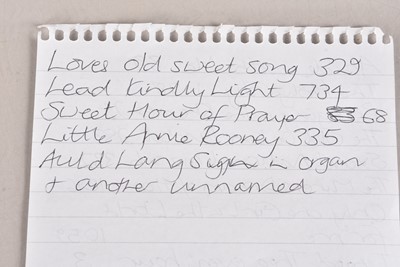 Loves old sweet song 329
Lead Kindly Light 734
Sweet Hour of Prayer 68
Little Annie Rooney 335
Auld Lang in organ
+ another unnamed